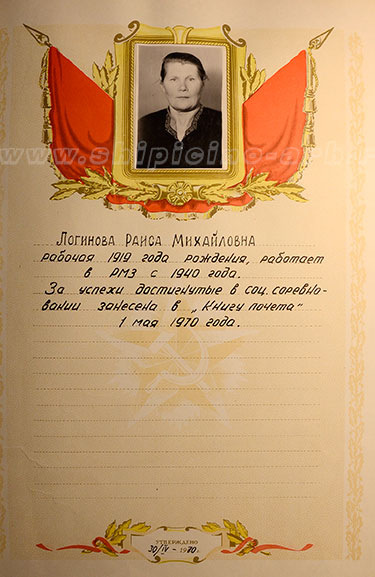 www.shipicino-arhi
Логинова Раиса Михайловна
рабочая 1919 года рождения, работает
в РМЗ с 1940 года.
За успехи достигнутые в соц. соревно-
вании занесена в „Книгу почета"
1 мая 1970 года.
УТВЕРЖДЕНО
30/IV - 1970 г.